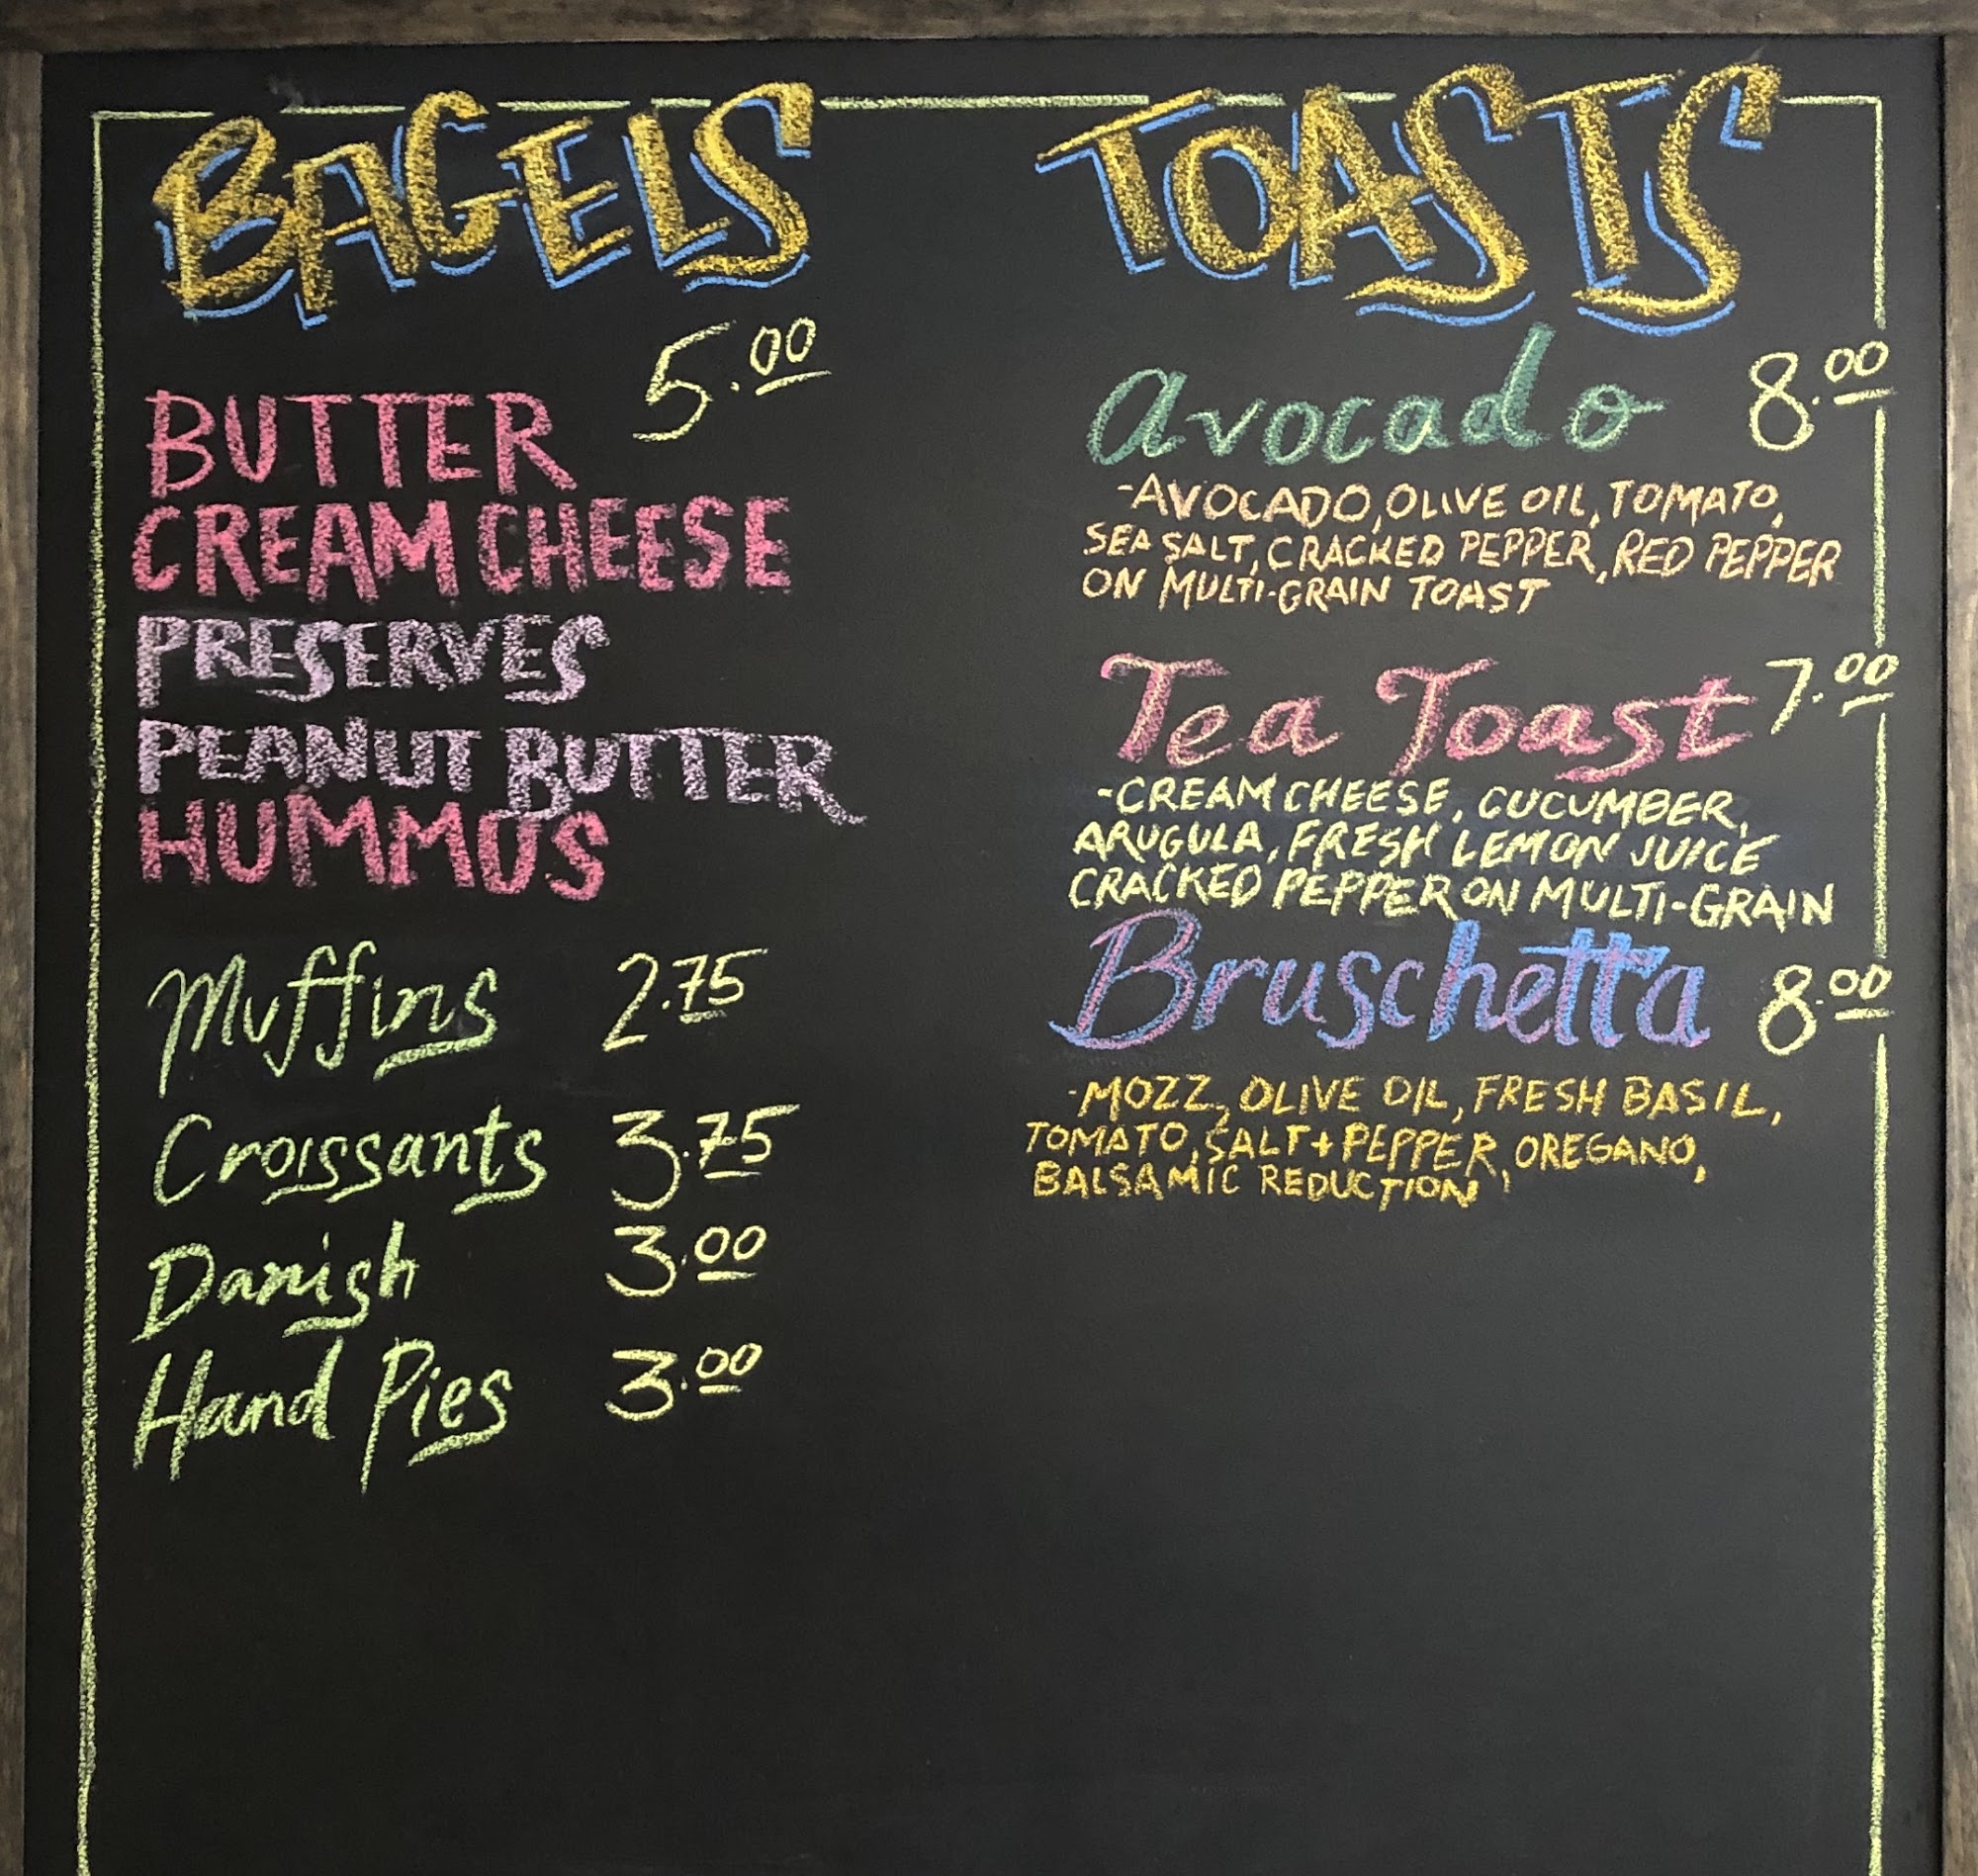 BAGELS
5.00
BUTTER
CREAM CHEESE
PRESERVES
PEANUT BUTTER
HUMMUS
Muffins 2.75
Croissants 3.75
Danish 3.00
Hand Pies 3.00
TOASTS
Avocado 8.00
-AVOCADO, OLIVE OIL, TOMATO,
SEA SALT, CRACKED PEPPER, RED PEPPER
ON MULTI-GRAIN TOAST
Tea Toast 7.00
-CREAM CHEESE, CUCUMBER,
ARUGULA, FRESH LEMON JUICE
CRACKED PEPPER ON MULTI-GRAIN
Bruschetta 8.00
-MOZZ, OLIVE OIL, FRESH BASIL,
TOMATO, SALT+PEPPER, OREGANO,
BALSAMIC REDUCTION